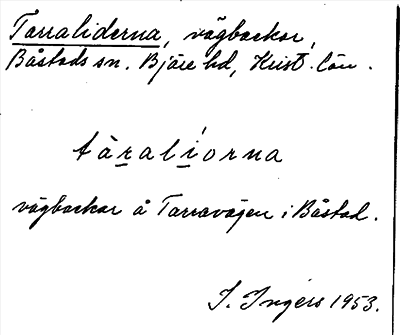 Tarraliderna, vägbackar,
Båstads sn. Bjäre hd, Krist. län.
tàraliorna
vägbackar å Tarravägen i Båstad.
I. Ingers 1953.